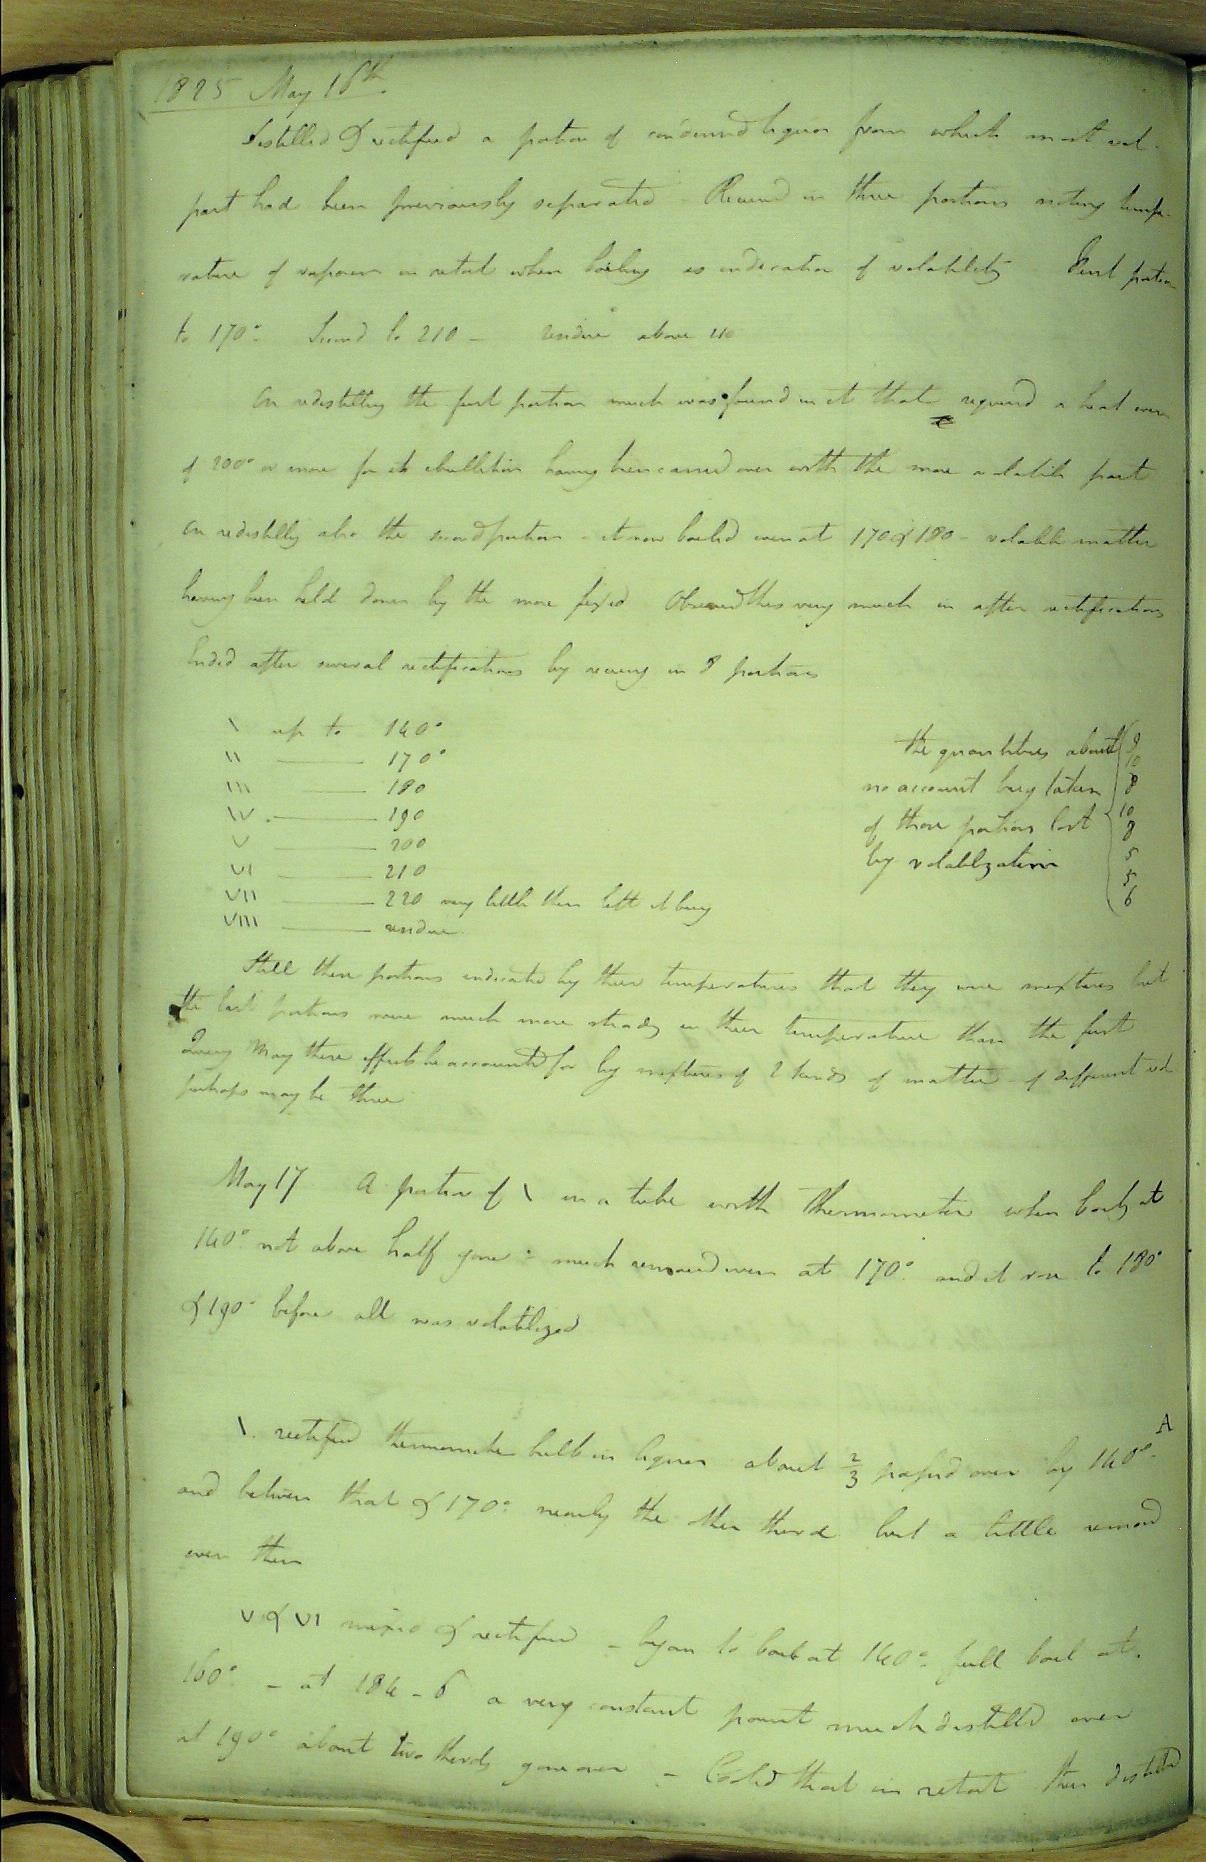 1825 May 16th.
Distilled & rectified a portion of condensed liquor from which most vol.
part had been previously separated - Received in three portions noting tempe-
rature of vapour in retort when boiling as indication of volatility First portion
to 170°. Second to 210 - residue above 210
On redistilling the first portion much was found in it that required a heat even
of 200° or more for its ebullition having been carried over with the more volatile part
On redistillg also the second portion - it now boiled even at 170 & 180 - volatile matter
having been held down by the more fixed Observed this very much in after rectifications
Ended after several rectifications by receivg in 8 portions
\ up to 140°
\\ 170°
\\\ 180
\V. 190
V 200
V\ 210
V\\ 220 very little then left it being
V\\\ residue
The quantities about
no account being taken
of those portions lost
by volatilization
9
10
8
10
8
5
5
6
Still these portions indicated by their temperatures that they were mixtures but
the last portions were much more steady in their temperature than the first
Query May these effects be accounted for by mixtures of 2 kinds of matter - of different vol
perhaps may be three
May 17 A portion of \ in a tube with thermometer when boilg at
140° not above half gone - much remained even at 170°. and it rose to 180°
& 190° before all was volatilized
\. rectified thermometer bulb in liquor about 2/3 passed over by 140°. A
and between that & 170° nearly the other third but a little remaind
even then
V & V\ mixed & rectified - began to boil at 140° full boil at
160°. - at 184-6 a very constant point much distilled over
at 190° about two thirds gone over - Cooled that in retort then distilled